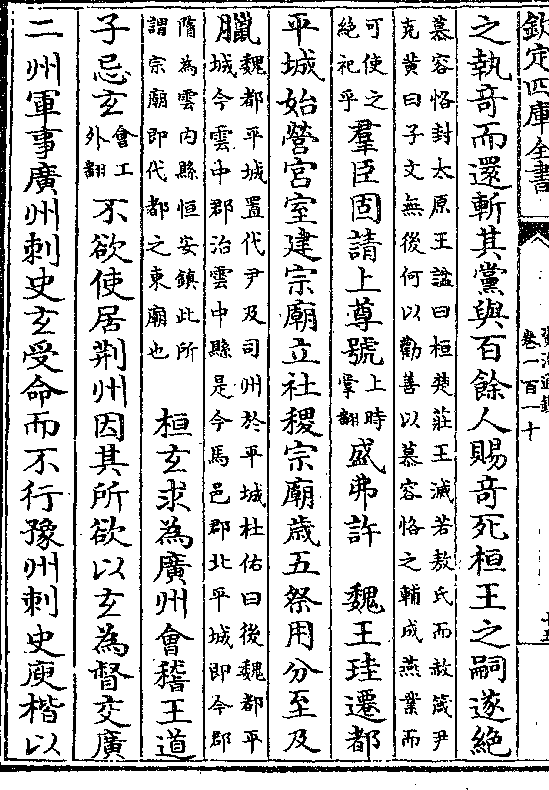 欽定四庫全書
資治通鑑
卷一百一十
十五
之執竒而還斬其黨與百餘人賜竒死桓王之嗣遂絶
慕容恪封太原王諡曰桓楚莊王滅若敖氏而赦箴尹
克黄曰子文無後何以勸善以慕容恪之輔成燕業而
可使之
絶祀乎
羣臣固請上尊號
上時
掌翻
盛弗許　魏王珪遷都
平城始營宫室建宗廟立社稷宗廟歳五祭用分至及
臘
魏都平城置代尹及司州於平城杜佑曰後魏都平
城今雲中郡治雲中縣是今馬邑郡北平城即今郡
隋為雲内縣恒安鎮此所
謂宗廟即代都之東廟也
桓玄求為廣州會稽王道
子忌玄
會工
外翻
不欲使居荆州因其所欲以玄為督交廣
二州軍事廣州刺史玄受命而不行豫州刺史庾楷以